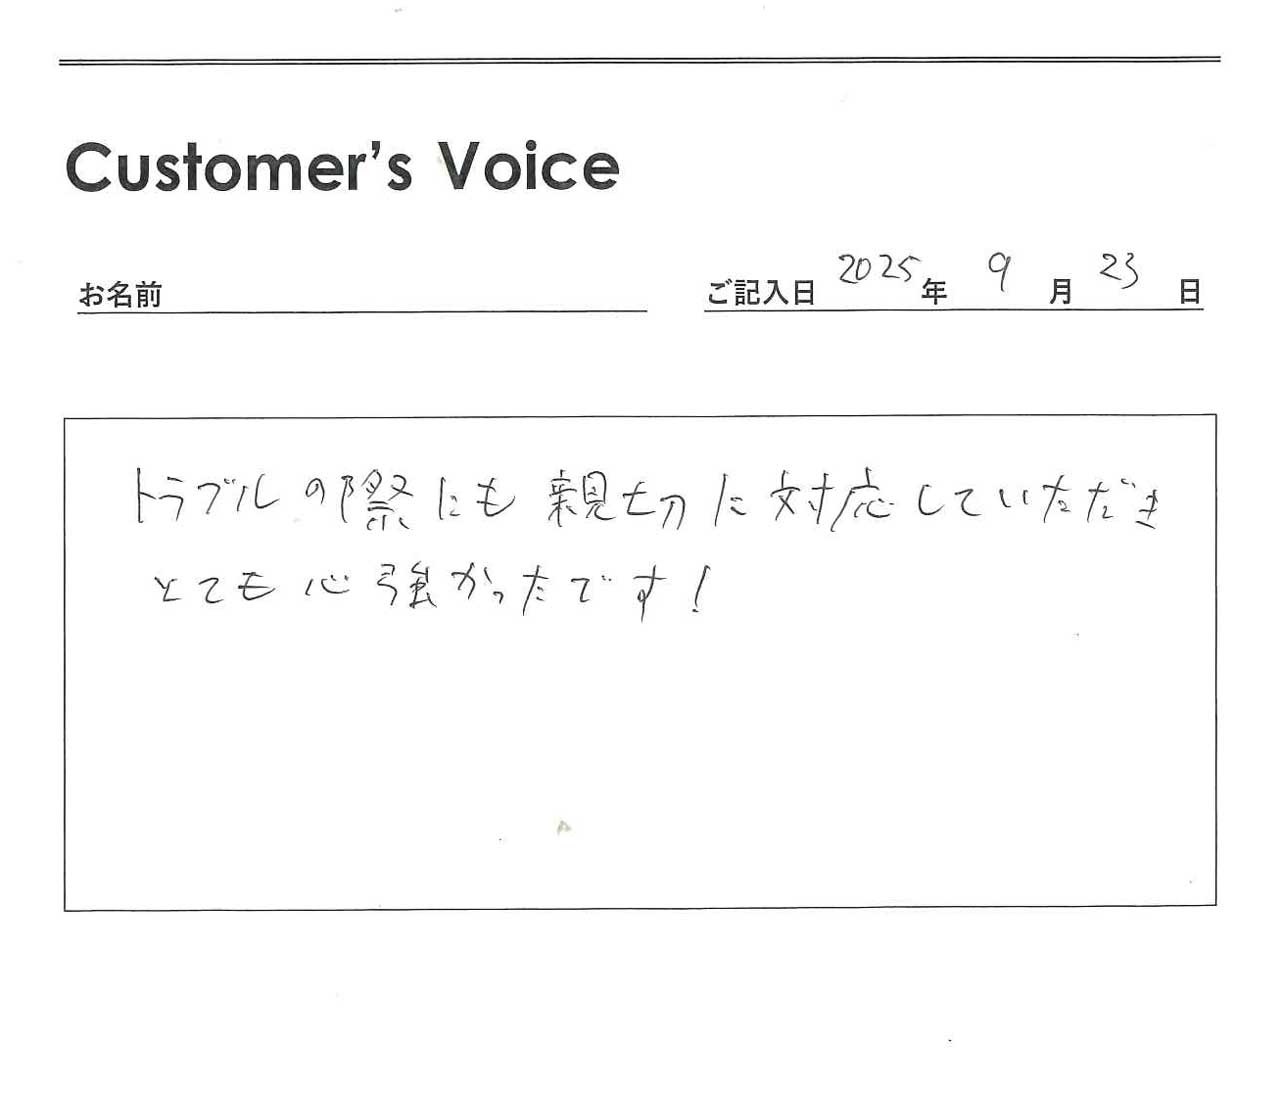 Customer's Voice
お名前
ご記入日 2025年 9月 23日
トラブルの際にも親切に対応していただき
とても心強かったです!